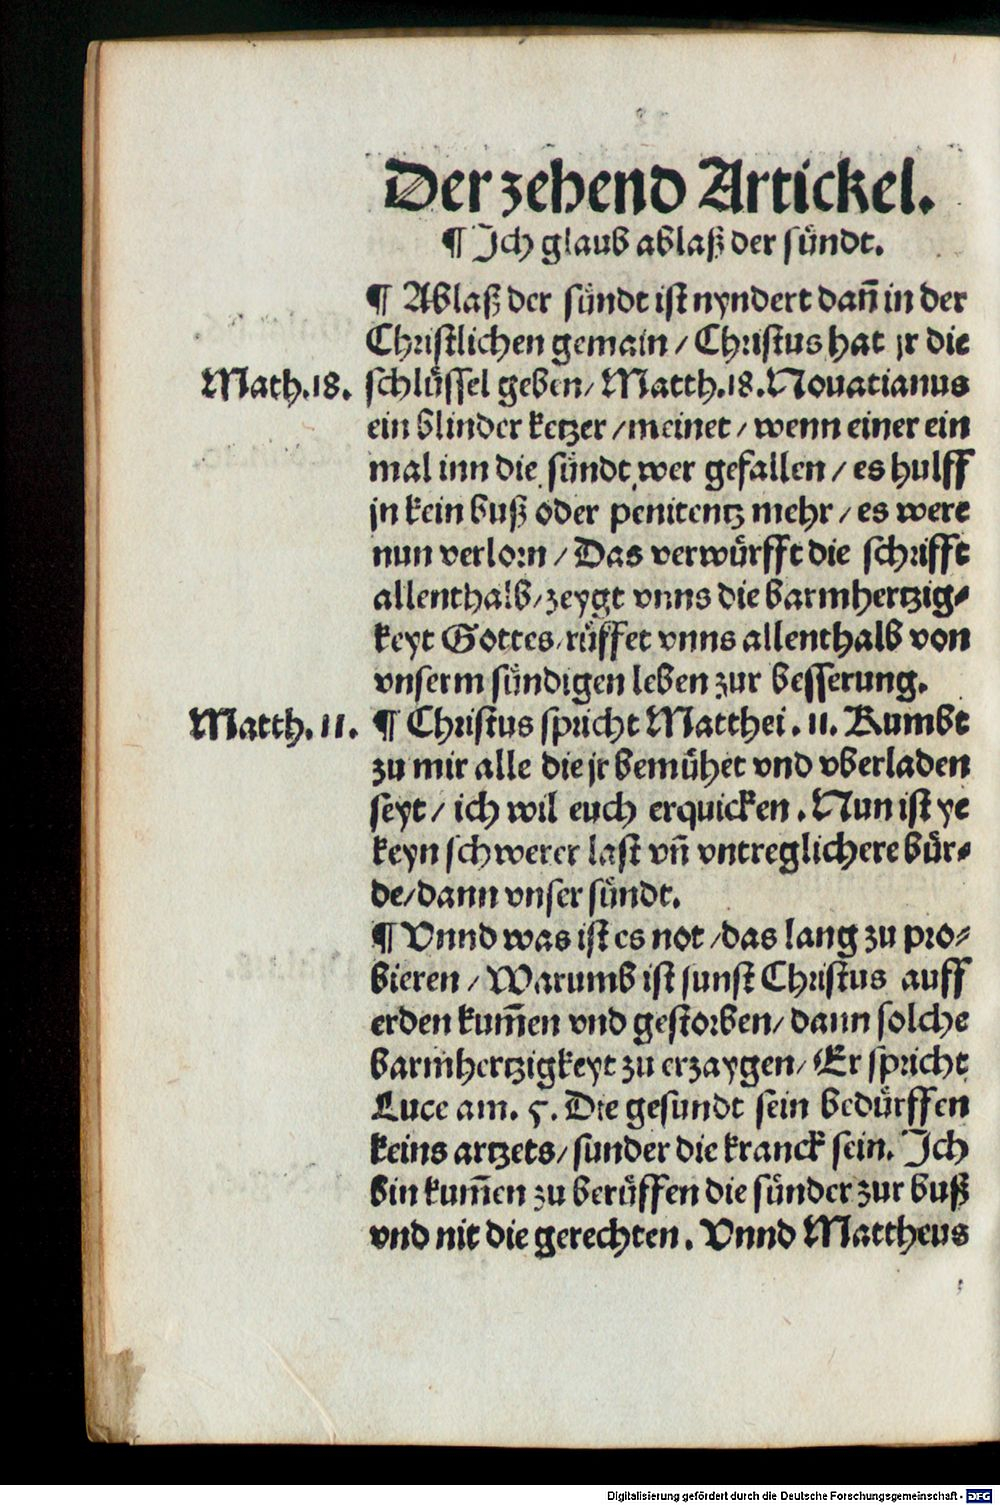 Der zehend Artickel.
¶ Ich glaub ablaß der sündt.
¶ Ablaß der sündt ist nyndert dañ in der
Christlichen gemain / Christus hat jr die
Math.18. schlüssel geben / Matth.18. Nouatianus
ein blinder ketzer / meinet / wenn einer ein
mal inn die sündt wer gefallen / es hulff
jn kein buß oder penitentz mehr / es were
nun verlorn / Das verwürfft die schrifft
allenthalb / zeygt vnns die barmhertzig⸗
keyt Gottes / rüffet vnns allenthalb von
vnserm sündigen leben zur besserung.
Matth. 11. ¶ Christus spricht Matthei. 11. Kumbt
zu mir alle die jr bemühet vnd vberladen
seyt / ich wil euch erquicken . Nun ist ye
keyn schwerer last vñ vntreglichere bür⸗
de / dann vnser sündt.
¶ Vnnd was ist es not / das lang zu pro⸗
bieren / Warumb ist sunst Christus auff
erden kum̃en vnd gestorben / dann solche
barmhertzigkeyt zu erzaygen / Er spricht
Luce am. 5. Die gesundt sein bedürffen
keins artzets / sunder die kranck sein. Ich
bin kum̃en zu berüffen die sünder zur buß
vnd nit die gerechten . Vnnd Mattheus
Digitalisierung gefördert durch die Deutsche Forschungsgemeinschaft - DFG